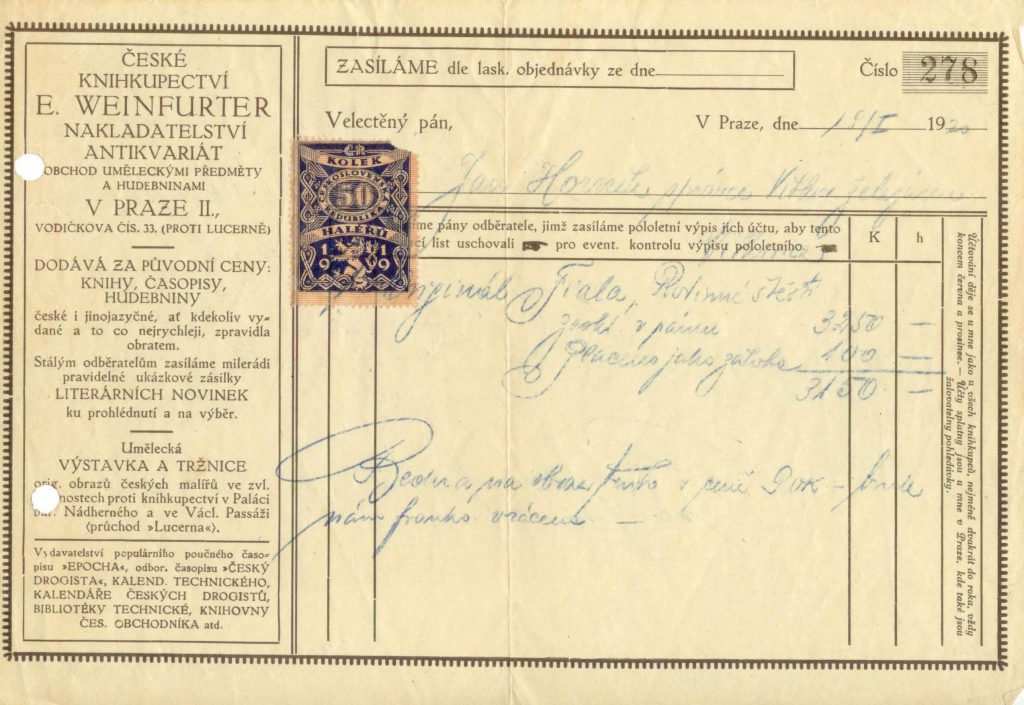 ČESKÉ
KNIHKUPECTVÍ
E. WEINFURTER
NAKLADATELSTVÍ
ANTIKVARIÁT
OBCHOD UMĚLECKÝMI PŘEDMĚTY
A HUDEBNINAMI
V PRAZE II.,
VODIČKOVA ČÍS. 33. (PROTI LUCERNĚ)
DODÁVÁ ZA PŮVODNÍ CENY:
KNIHY, ČASOPISY,
HUDEBNINY
české i jinojazyčné, ať kdekoliv vy-
dané a to co nejrychleji, zpravidla
obratem.
Stálým odběratelům zasíláme milerádi
pravidelné ukázkové zásilky
LITERÁRNÍCH NOVINEK
ku prohlédnutí a na výběr.
Umělecká
VÝSTAVKA A TRŽNICE
orig. obrazů českých malířů ve zvl.
nostech proti knihkupectví v Paláci
Nádherného a ve Václ. Passáži
(průchod »Lucerna«).
Vydavatelství populárního poučného časo-
pisu »EPOCHA«, odbor. časopisu »ČESKÝ
DROGISTA«, KALEND. TECHNICKÉHO,
KALENDÁŘE ČESKÝCH DROGISTŮ,
BIBLIOTÉKY TECHNICKÉ, KNIHOVNY
ČES. OBCHODNÍKA atd.
ZASÍLÁME dle lask. objednávky ze dne
Číslo 278
Velectěný pán,
V Praze, dne 19/I 1920
Jan
ČR
KOLEK
ČESKOSLOVENSKÁ
50
REPUBLIKA
HALÉŘŮ
1919
me pány odběratele, jimž zasíláme pololetní výpis jich účtu, aby tento
cí list uschovali pro event. kontrolu výpisu pololetního.
K h
originál Fiala, Rodinné štěstí
v rámu 3250 —
Placeno jako záloha 100 —
3150 —
Bedna na obraz tento v ceně 90K — bude
nám franko vrácena —
Účtování děje se u mne jako u všech knihkupců, nejméně dvakrát do roka, vždy
koncem června a prosince. — Účty splatny jsou u mne v Praze, kde také jsou
žalovatelny pohledávky.